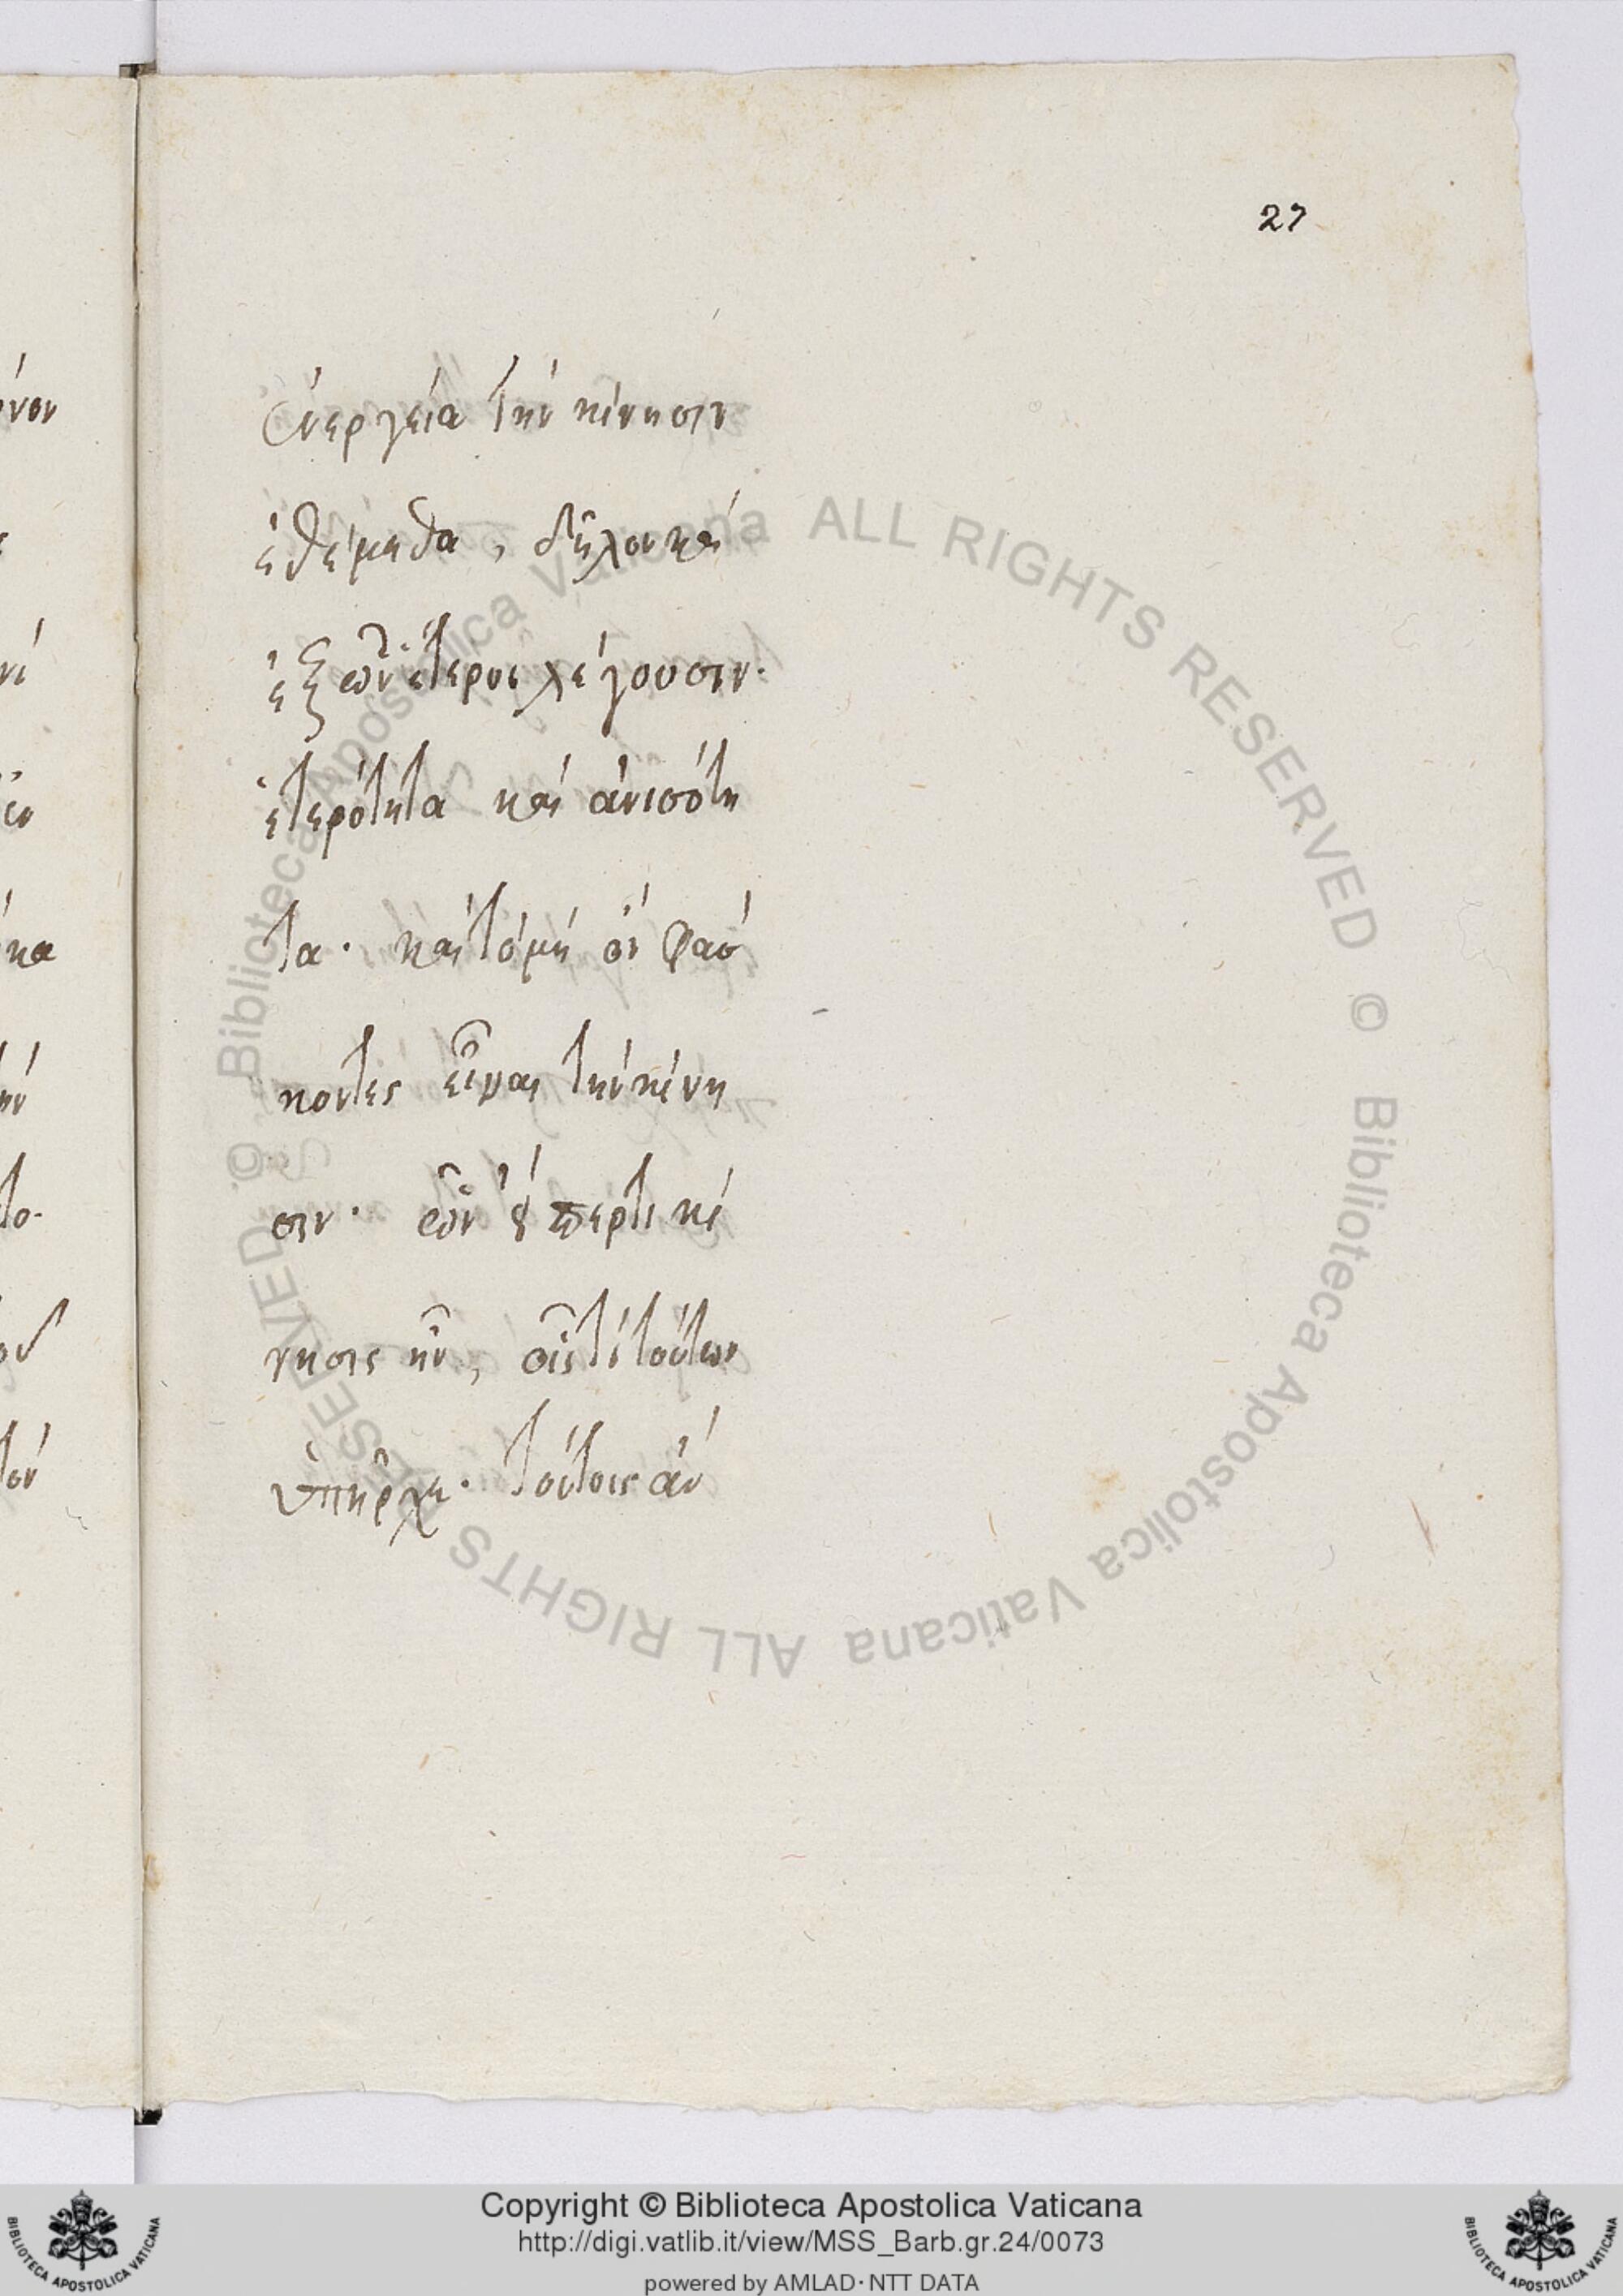 27
ἐνεργεία τὴν κίνησιν
ἐθέμεθα, δῆλον καὶ
ἐξ ὧν ἕτεροι λέγουσιν.
ἑτερότητα καὶ ἀνισότη
τα. καὶ τὸ μὴ ὂν φάσ
κοντες εἶναι τὴν κίνη
σιν. ὧν εἴπερ τι κί
νησις ἦν, οἷς τὶ τούτων
ὑπῆρχε. τούτοις ἀν
όνον
νὶ
κα
ὴν
το.
τὸν
© Biblioteca Apostolica Vaticana ALL RIGHTS RESERVED © Biblioteca Apostolica Vaticana ALL RIGHTS RESERVED
Copyright © Biblioteca Apostolica Vaticana
http://digi.vatlib.it/view/MSS_Barb.gr.24/0073
powered by AMLAD·NTT DATA
BIBLIOTECA APOSTOLICA VATICANA
BIBLIOTECA APOSTOLICA VATICANA